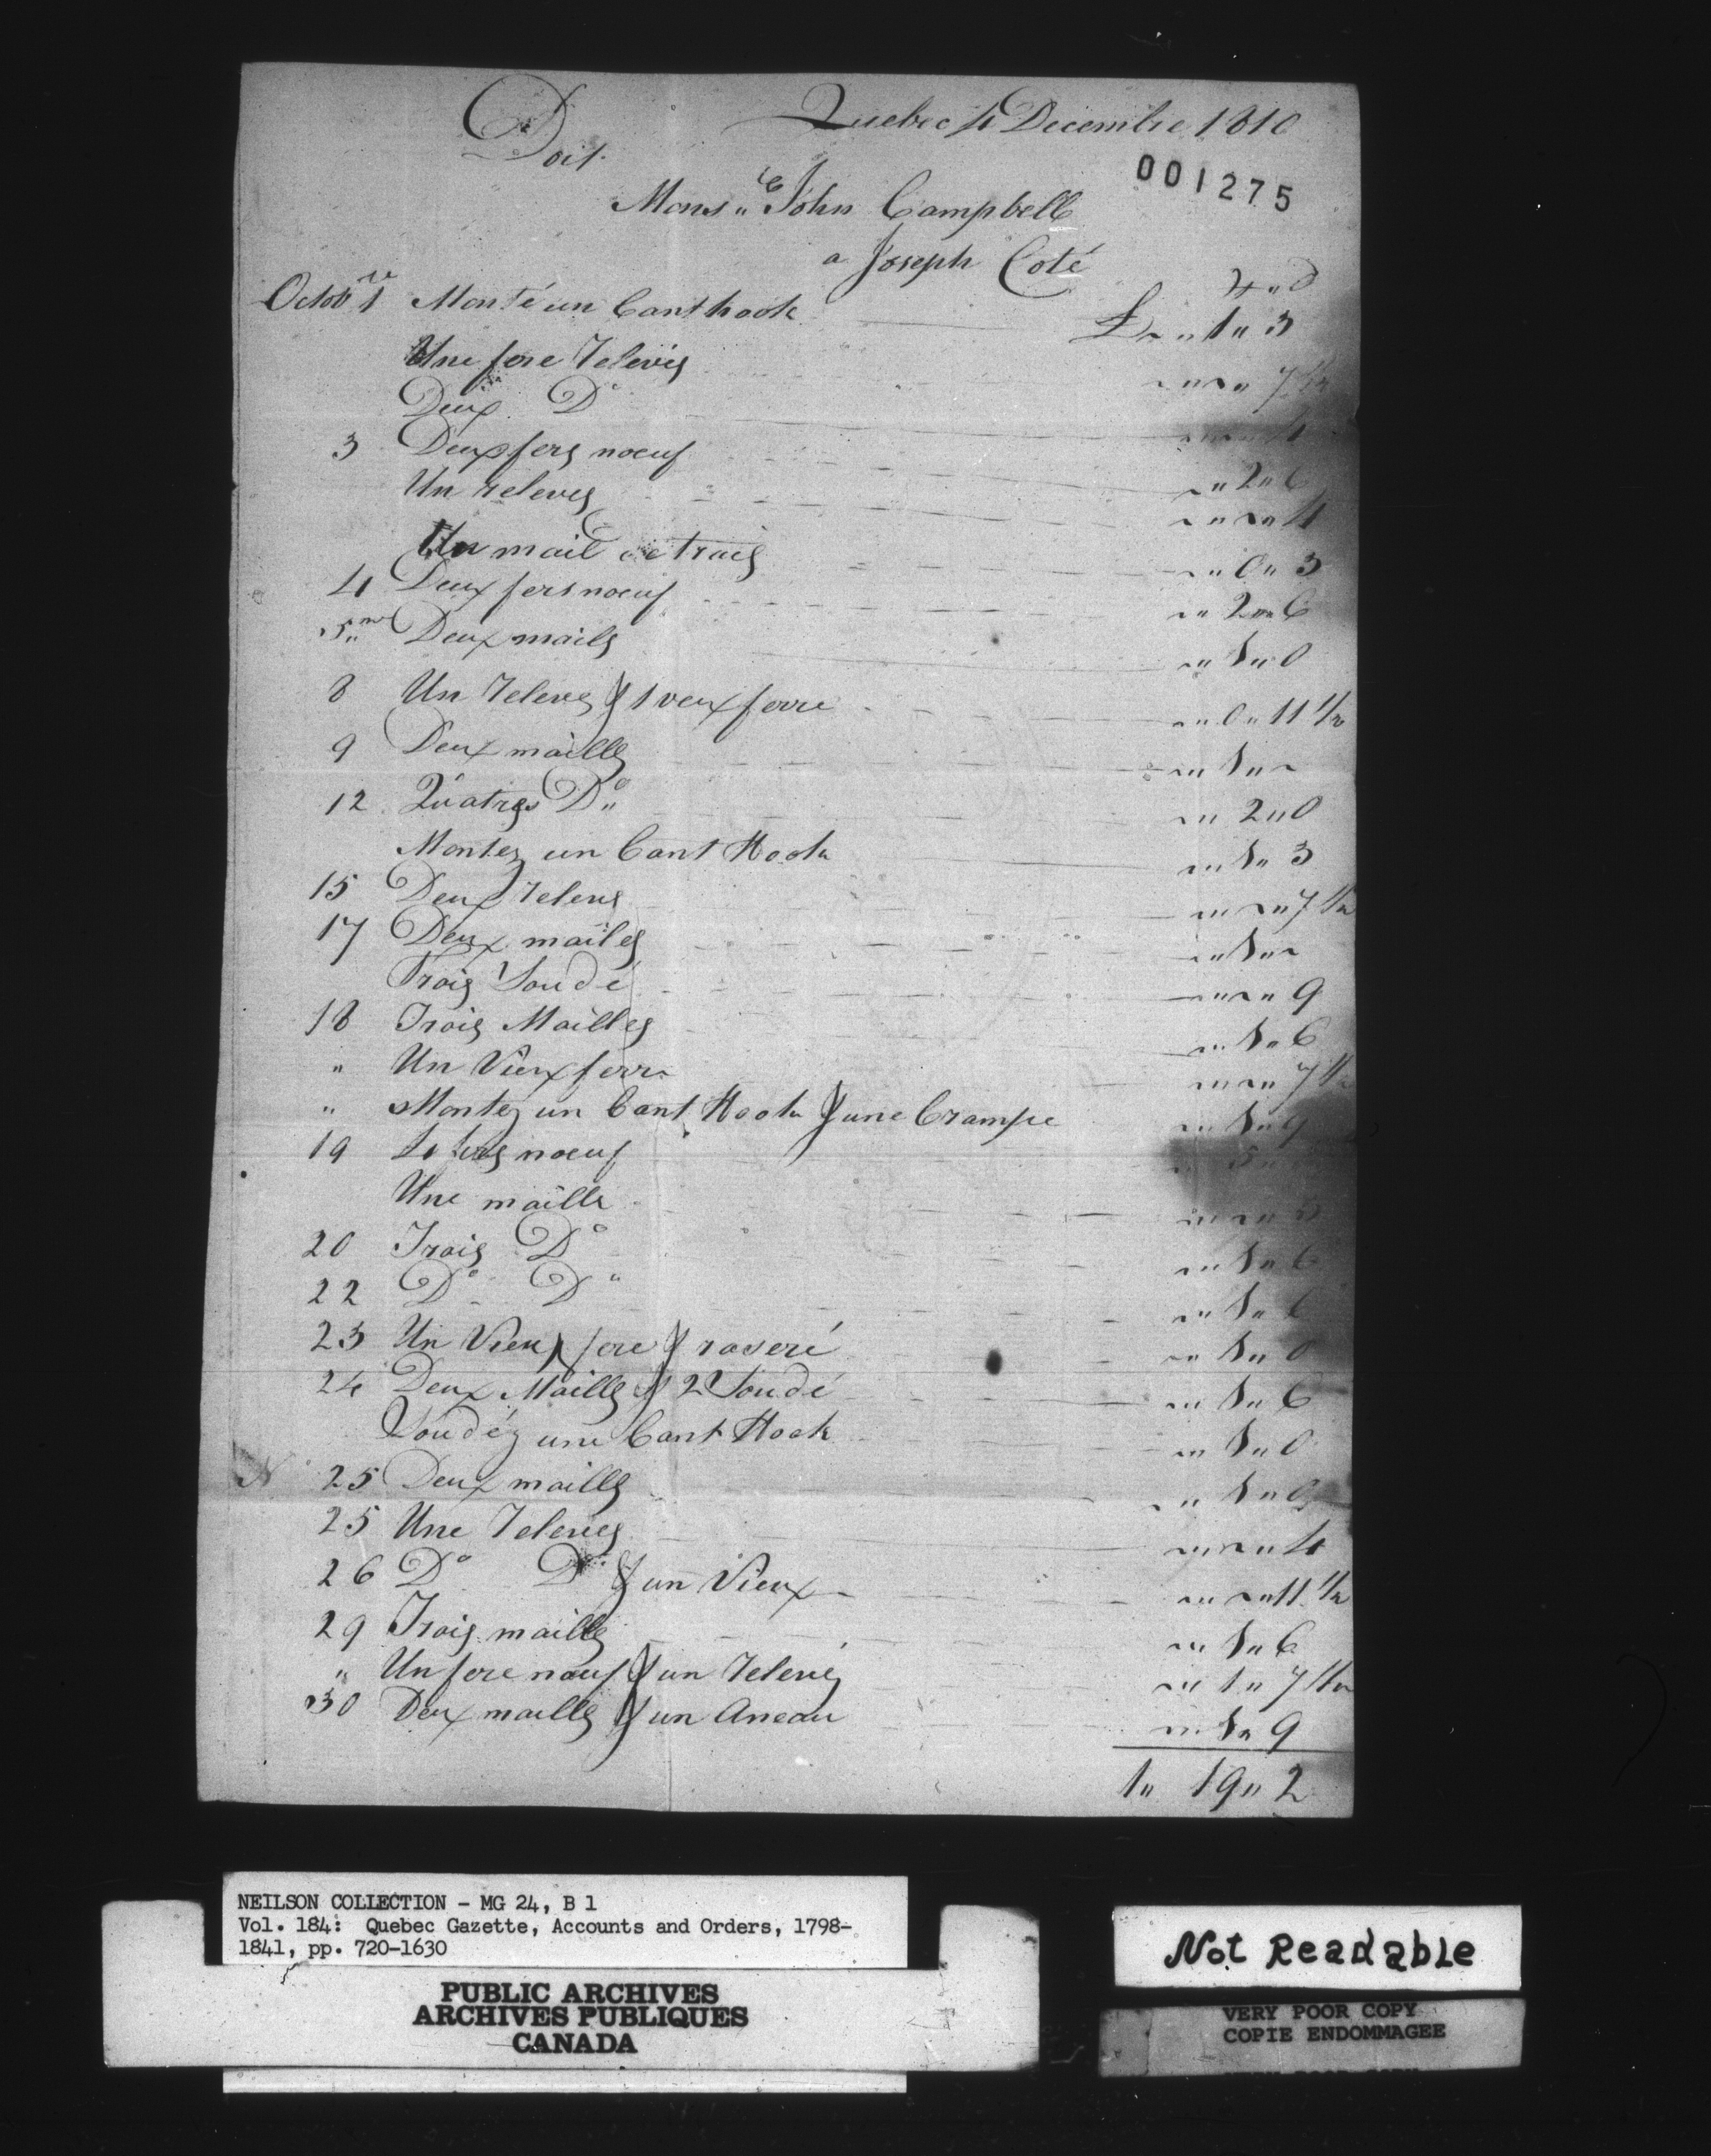 Quebec 4 Decembre 1810
Doit
001275
Mons" e John Campbell
a Joseph Coté
Octobre 1 Monté un Canthook £ " 1 " 3
Une fere relevés " " 7 1/2
Deux Do " " 4
3 Deux fers noeuf " 2 " 6
Un releves " " 4
Un mail " 0 " 3
4 Deux fers noeuf " 2 " 6
5 Deux mails " 1 " 0
8 Un releves & 1 veux ferre " 0 " 11 1/2
9 Deux mailles " 1 "
12 Quatres Do " 2 " 0
Montez un Cant Hook " 1 " 3
15 Deux releves " " 7 1/2
17 Deux mailes " 1 "
Trois Soudé " " 9
18 Trois Mailles " 1 " 6
" Un Vieux ferre " " 7 1/2
" Montez un Cant Hook & une Crampe " 1 " 9
19 4 fers noeuf " 5 "
Une maille " "
20 Trois Do " 1 " 6
22 Do Do " 1 " 6
23 Un Vieux fere & raseré " 1 " 0
24 Deux Mailles & 2 Soudé " 1 " 6
Soudéz une Cant Hook " 1 " 0
25 Deux mailles " 1 " 0
25 Une releves " " 4
26 Do Do & un Vieux " " 11 1/2
29 Trois mailles " 1 " 6
" Un fere noeuf & un relevés " 1 " 7 1/2
30 Deux mailles & un Aneau " 1 " 9
1 " 19 " 2
NEILSON COLLECTION - MG 24, B 1
Vol. 184: Quebec Gazette, Accounts and Orders, 1798-
1841, pp. 720-1630
PUBLIC ARCHIVES
ARCHIVES PUBLIQUES
CANADA
Not Readable
VERY POOR COPY
COPIE ENDOMMAGEE